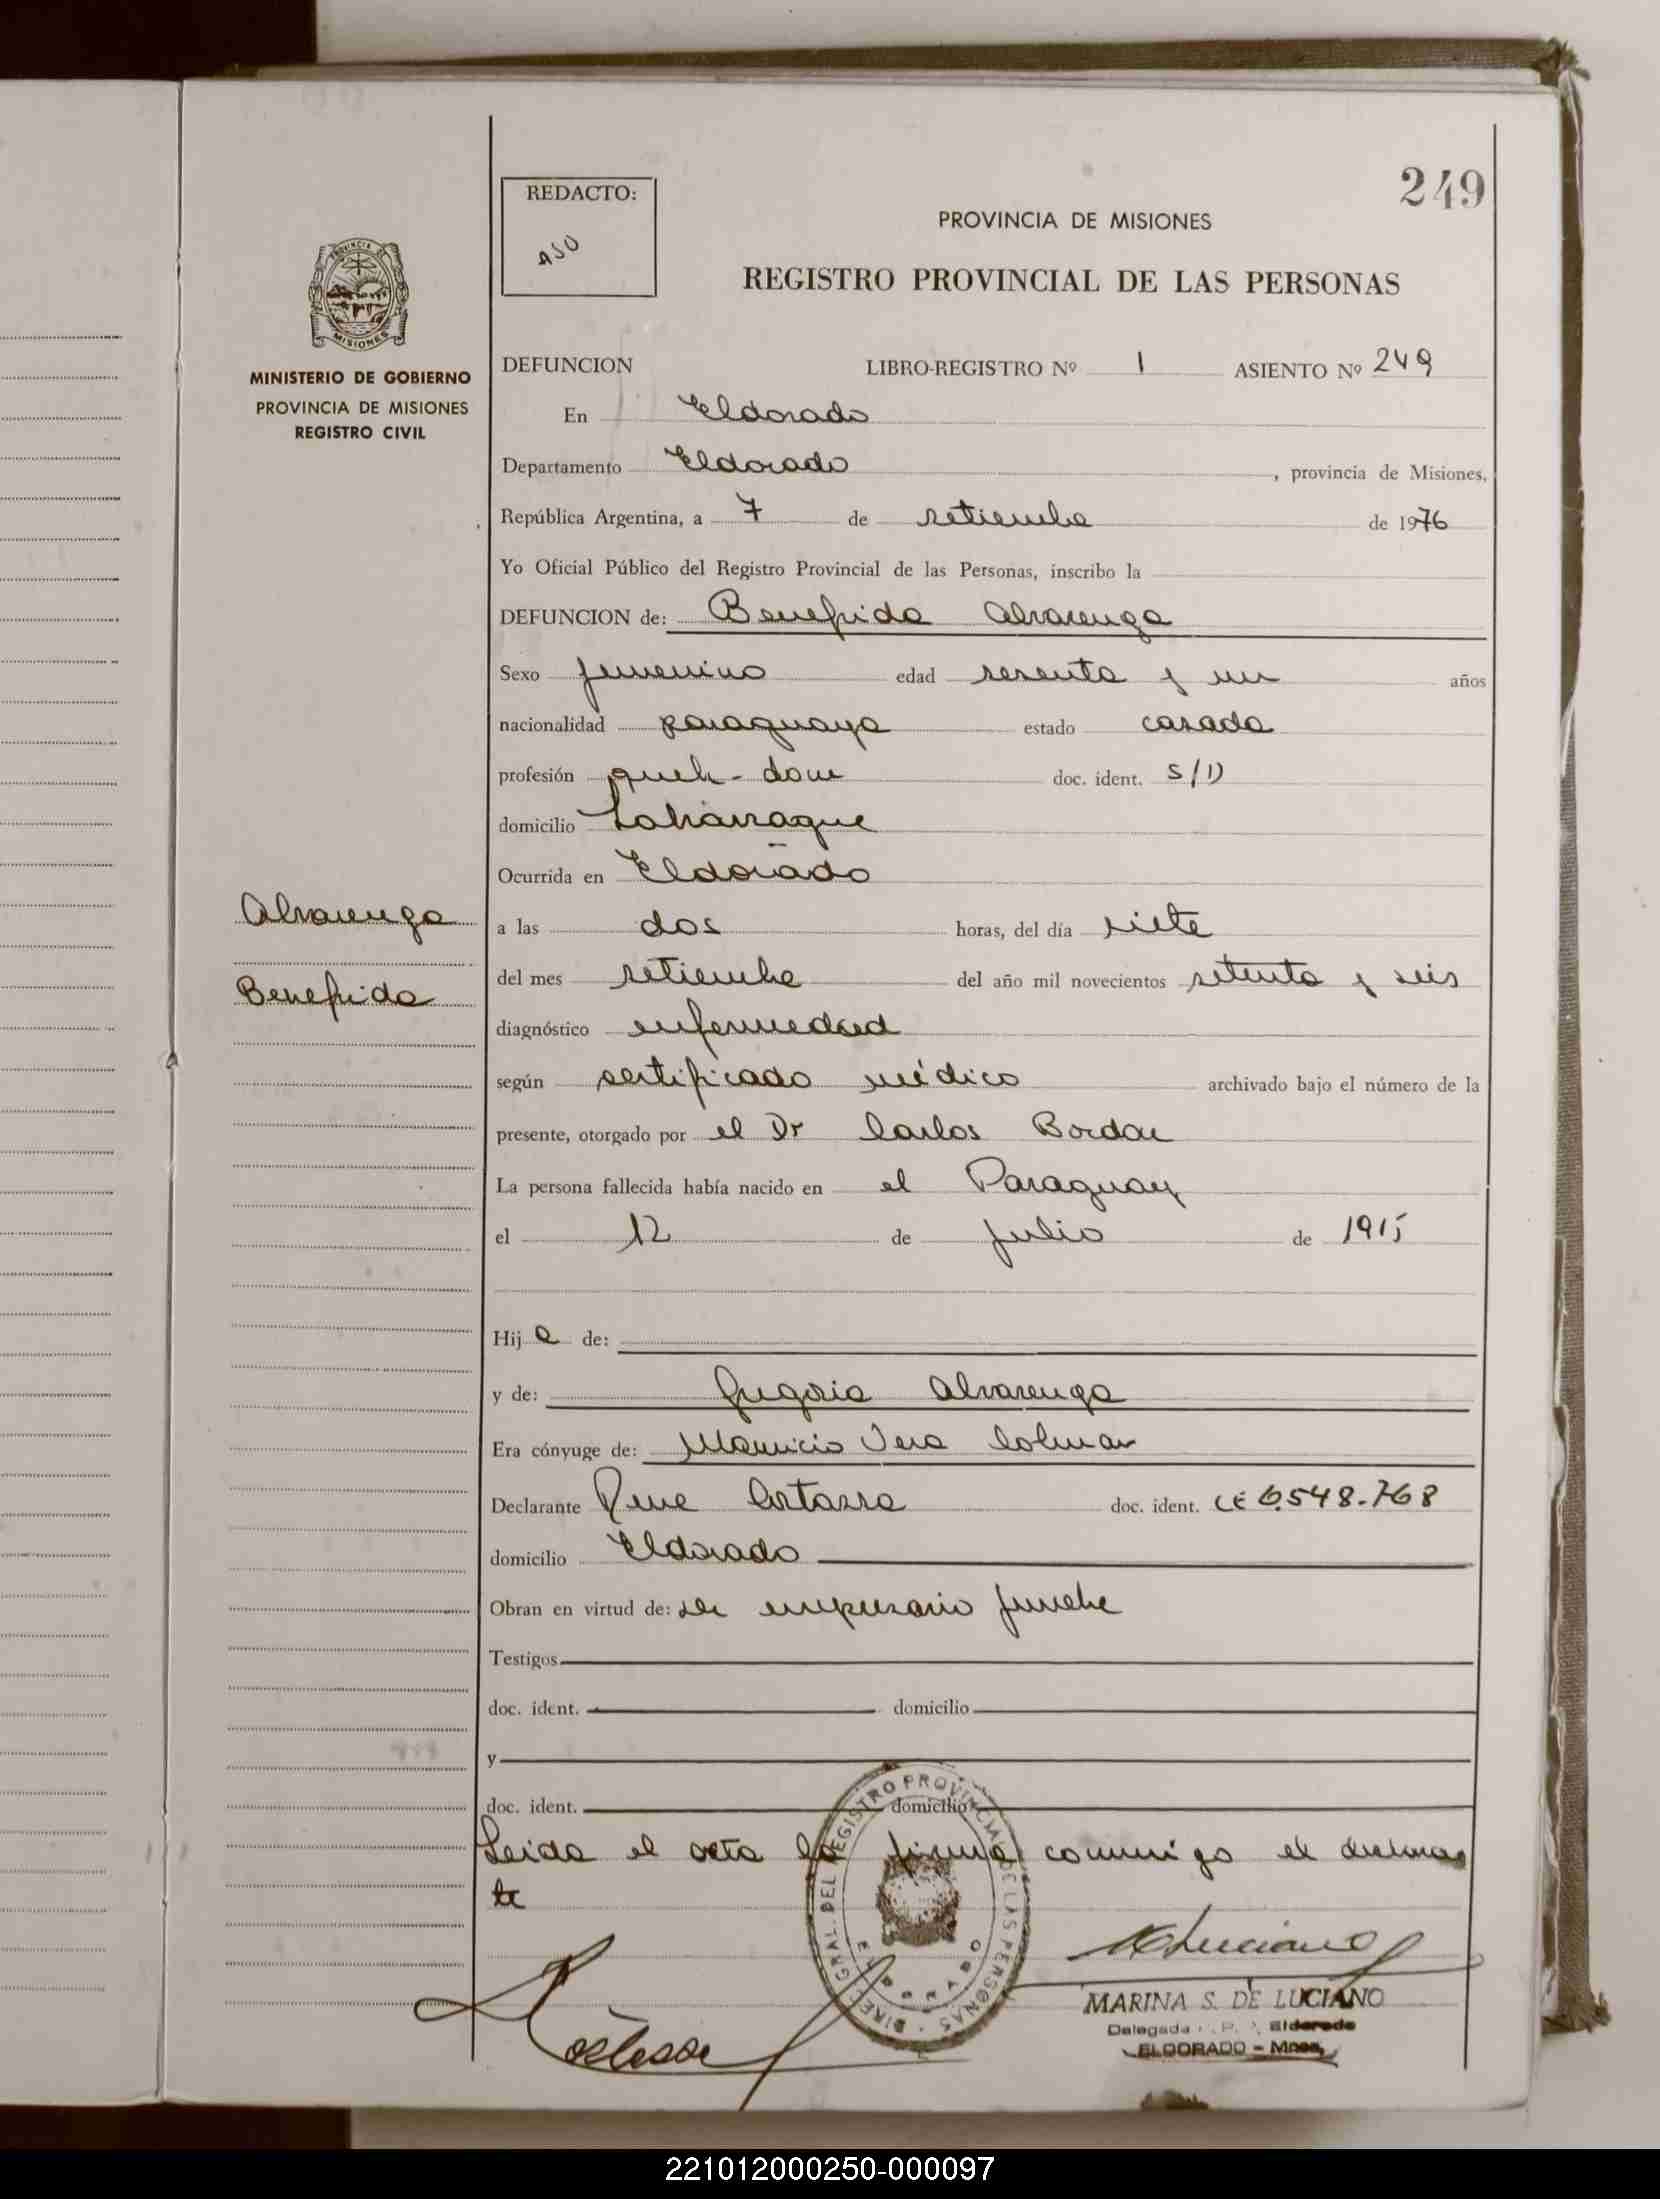 249
REDACTO:
ASO
PROVINCIA DE MISIONES
REGISTRO PROVINCIAL DE LAS PERSONAS
PROVINCIA DE
MISIONES
MINISTERIO DE GOBIERNO
PROVINCIA DE MISIONES
REGISTRO CIVIL
DEFUNCION LIBRO-REGISTRO Nº 1 ASIENTO Nº 249
En Eldorado
Departamento Eldorado, provincia de Misiones,
República Argentina, a 7 de setiembre de 1976
Yo Oficial Público del Registro Provincial de las Personas, inscribo la
DEFUNCION de: Benefrida Alvarenga
Sexo femenino edad sesenta y un años
nacionalidad paraguaya estado casada
profesión queh-dom doc. ident. S/D
domicilio
Ocurrida en Eldorado
Alvarenga
a las dos horas, del día siete
Benefrida
del mes setiembre del año mil novecientos setenta y seis
diagnóstico enfermedad
según sertificado médico archivado bajo el número de la
presente, otorgado por el Dr Carlos
La persona fallecida había nacido en el Paraguay
el 12 de julio de 1915
Hija de:
y de: Gregoria Alvarenga
Era cónyuge de: Mauricio Vera Colman
Declarante Rene doc. ident. CE 6.548.768
domicilio Eldorado
Obran en virtud de: ser empresario funebre
Testigos
doc. ident. domicilio
y
doc. ident. domicilio
Leida el acta la firma conmigo el declaran
te
DIREC. GRAL. DEL REGISTRO PROVINCIAL DE LAS PERSONAS
ELDORADO
MARINA S. DE LUCIANO
Delegada R. P. P. Eldorado
ELDORADO - Mnes.
221012000250-000097